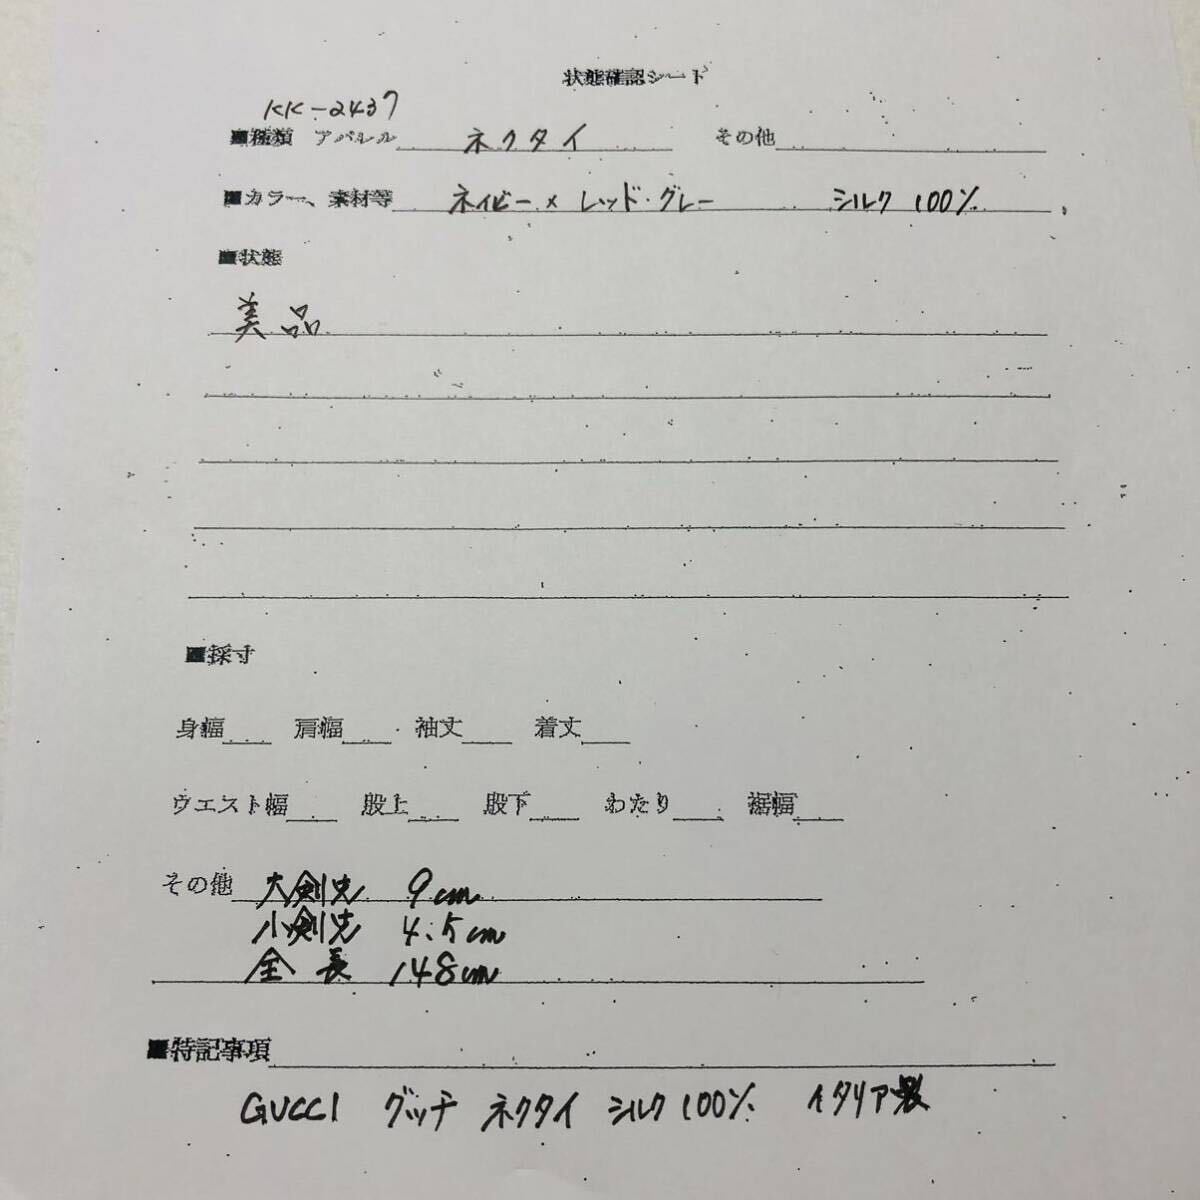 状態確認シート
KK-2437
■種類 アパレル ネクタイ その他
■カラー、素材等 ネイビー×レッド・グレー シルク 100%
■状態
美品
■採寸
身幅 肩幅 袖丈 着丈
ウエスト幅 股上 股下 わたり 裾幅
その他 大剣先 9cm
小剣先 4.5cm
全長 148cm
■特記事項
GUCCI グッチ ネクタイ シルク100% イタリア製